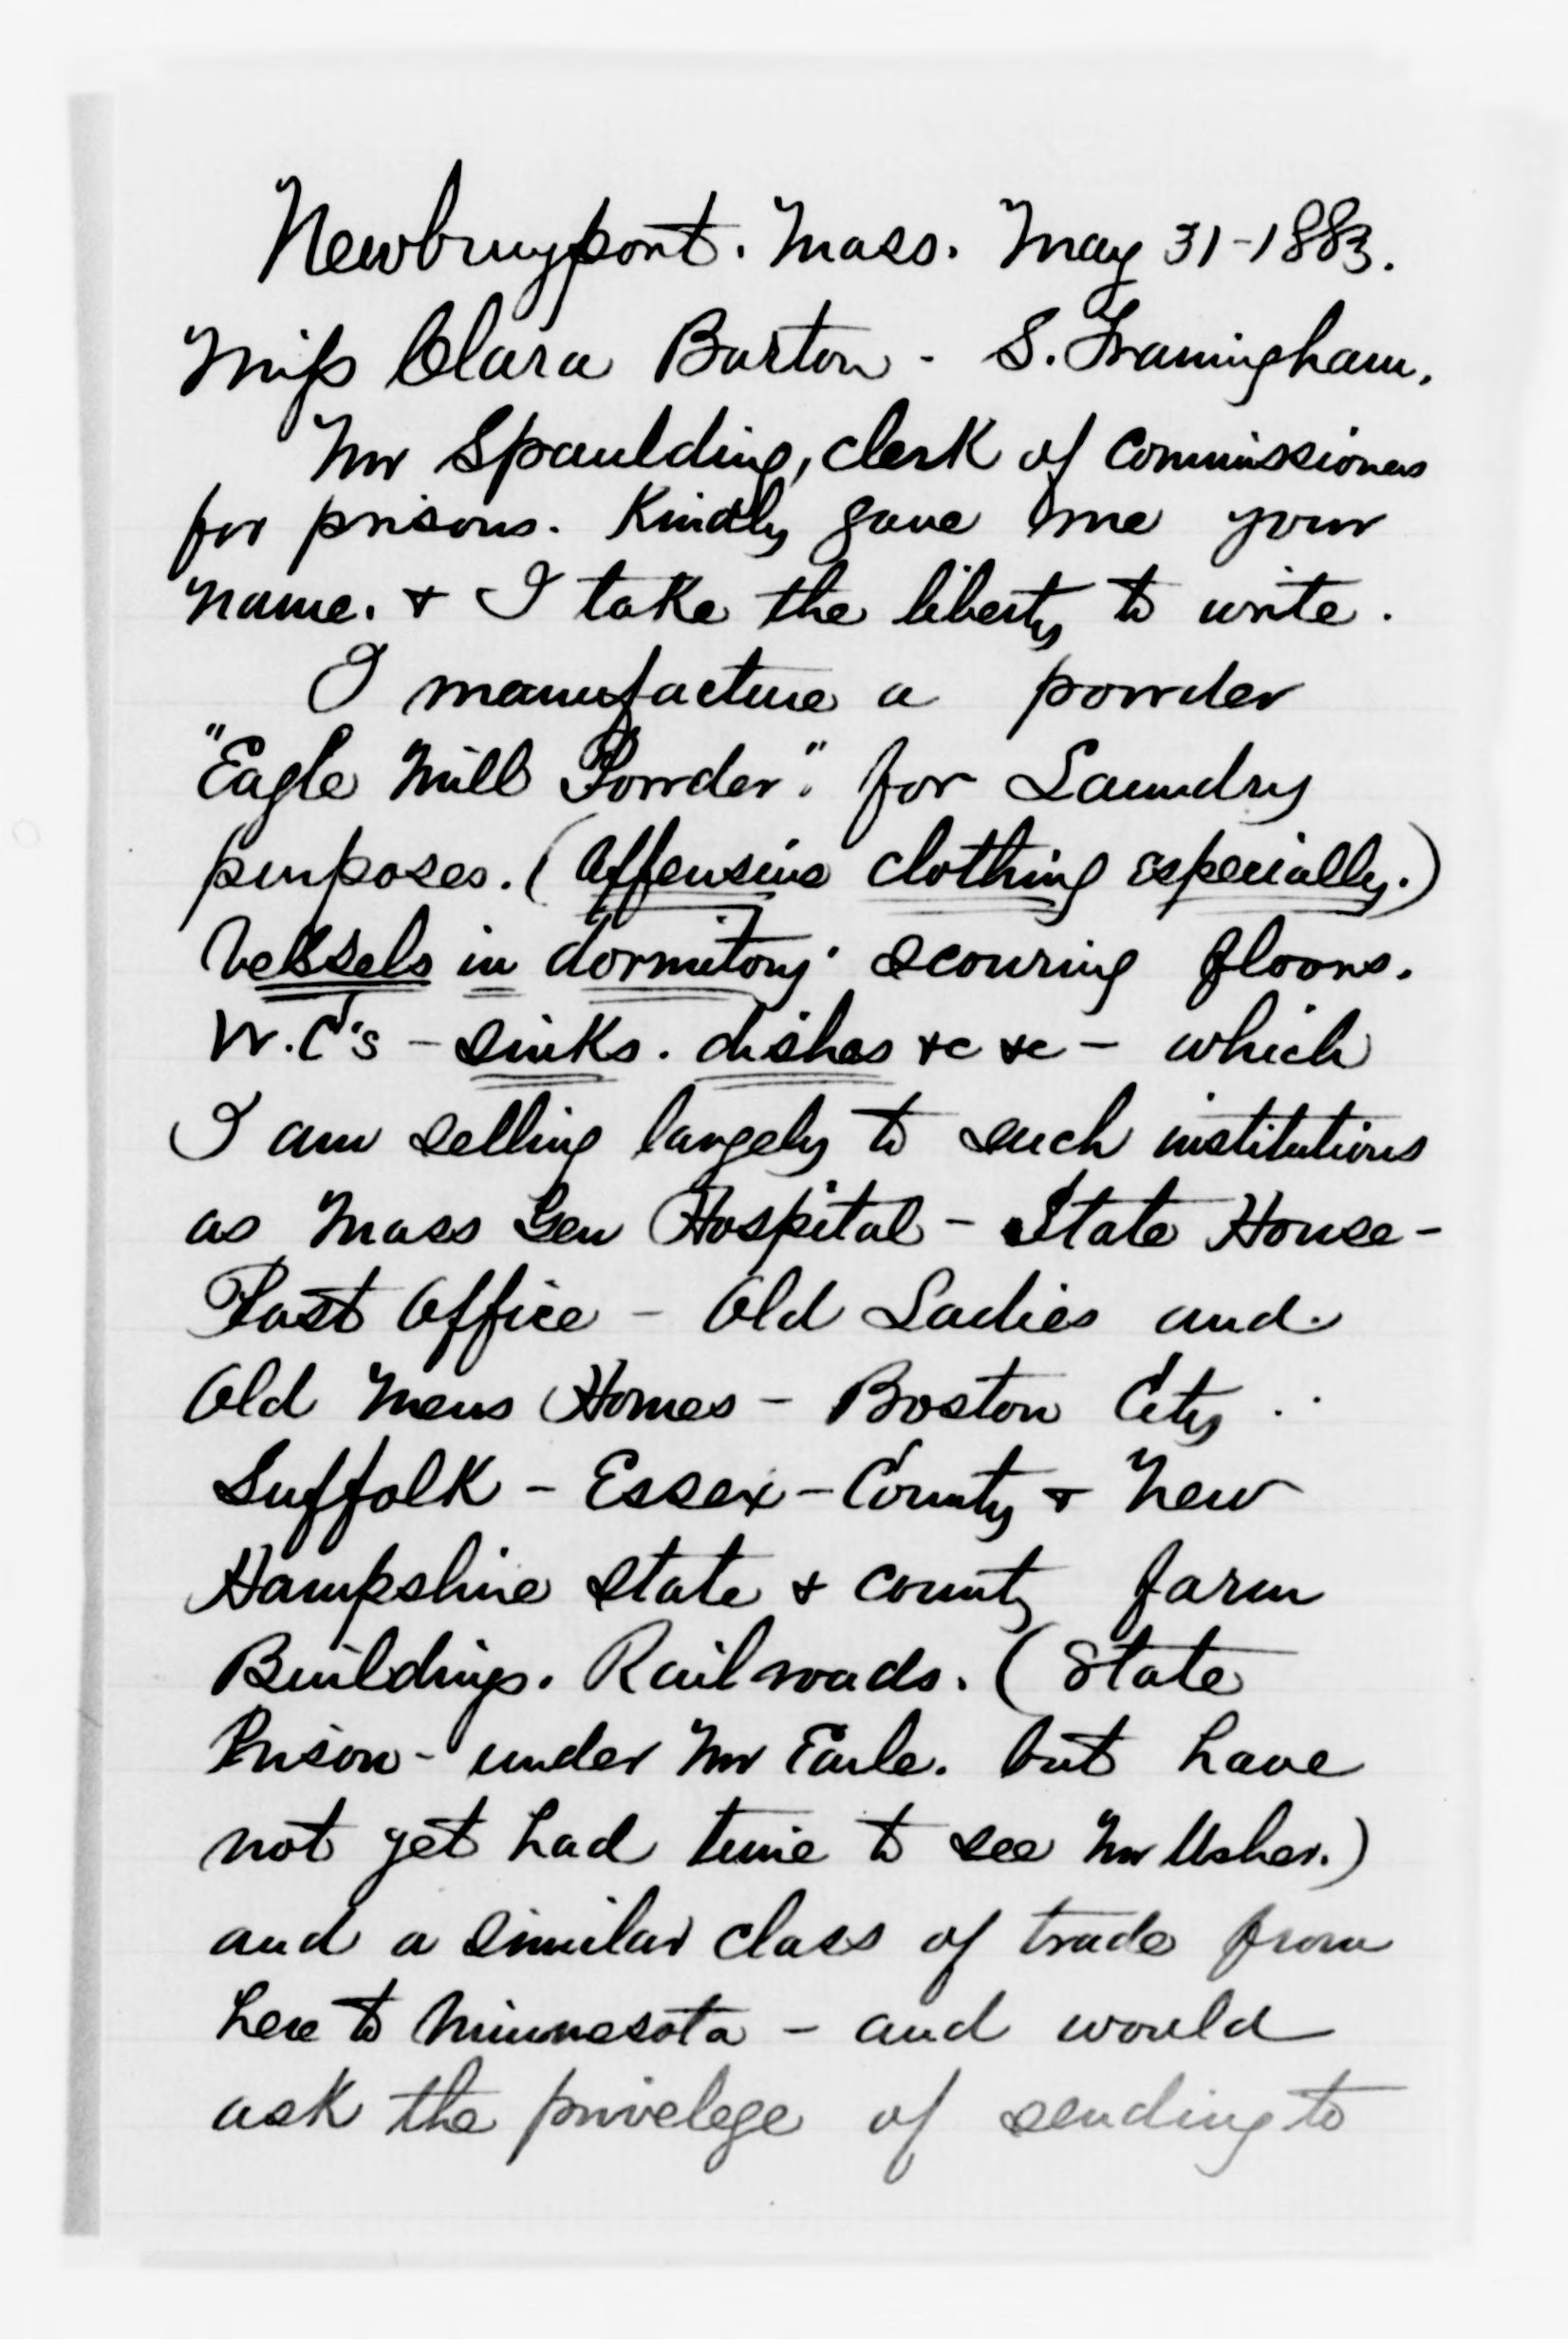 Newburyport. Mass. May 31-1883.
Miss Clara Barton - S. Framingham.
Mr Spaulding, clerk of Commissioners
for prisons. Kindly gave me your
name. & I take the liberty to write.
I manufacture a powder
"Eagle Mill Powder". for Laundry
purposes. (Offensive clothing especially.)
Vessels in dormitory. scouring floors.
W.C's - sinks. dishes &c &c - which
I am selling largely to such institutions
as Mass Gen Hospital - State House -
Post Office - Old Ladies and
Old Mens Homes - Boston City ..
Suffolk - Essex - County & New
Hampshire State & County farm
Buildings. Railroads. (State
Prison - under Mr Earle. but have
not yet had time to see Mr Usher.)
and a similar class of trade from
here to Minnesota - and would
ask the privelege of sending to